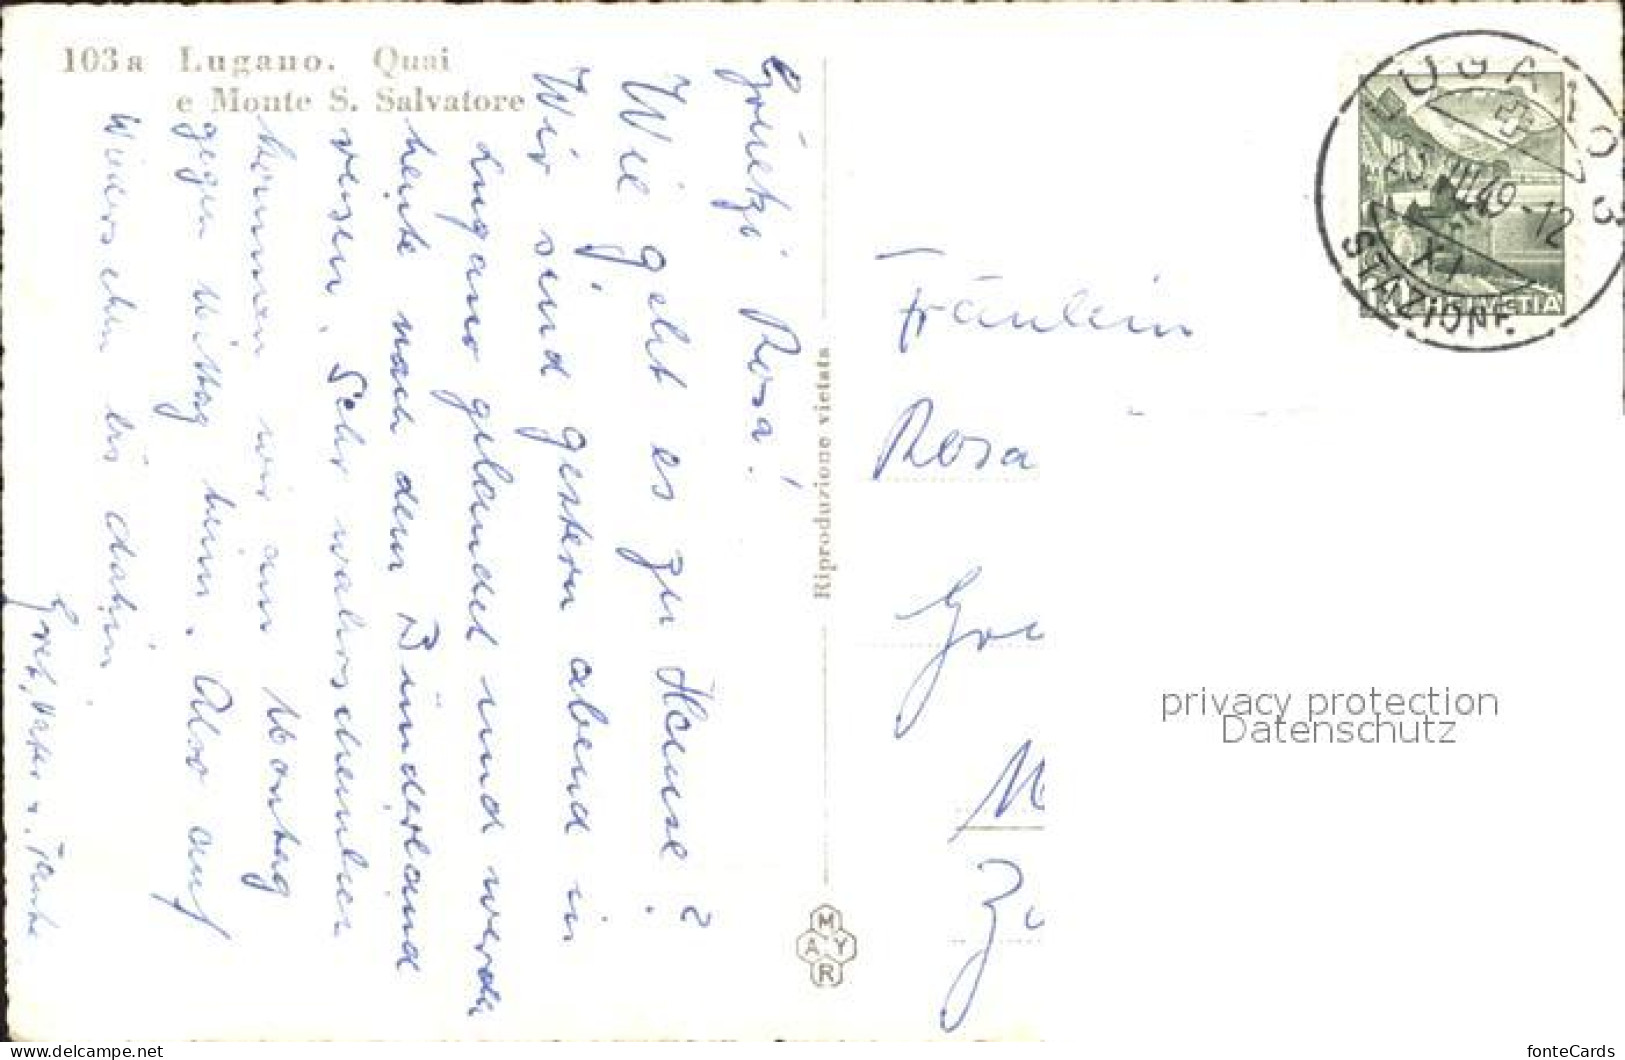 103a Lugano. Quai
e Monte S. Salvatore
Grüetzi Rosa!
Wie geht es zu Hause?
Wir sind gestern abend in
Lugano gelandet und werden
heute nach dem Bünderland
reisen. Sehr wahrscheinlich
kommen wir am Montag
gegen Mittag heim. Also auf
Wiedersehen bis dahin
Gret, Vater u.
Riproduzione vietata
MAYR
Fräulein
Rosa
LUGANO 3
VIII.49-12
XI
STAZIONE
HELVETIA
privacy protection
Datenschutz
akpool.de
fonteCards